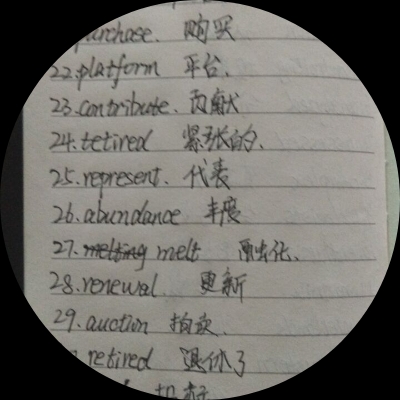 purchase. 购买
22.platform 平台.
23.contribute. 贡献
24.tetired 紧张的.
25.represent. 代表
26.abundance 丰度
27. melting melt 融化.
28.renewal 更新
29.auctun 拍卖.
retired 退休了